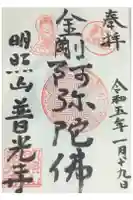 奉拝
令和五年一月十九日
金剛
阿弥陀佛
明照山普光寺